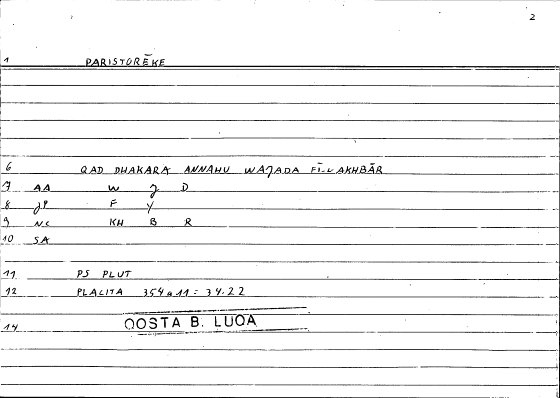 2
1 PARISTORĒKE
6 QAD DHAKARA ANNAHU WAJADA FĪ-L-AKHBĀR
7 AA W J D
8 JP F Y
9 NC KH B R
10 SA
11 PS PLUT
12 PLACITA 354 a 11 = 34.22
14 QOSTA B. LUQA